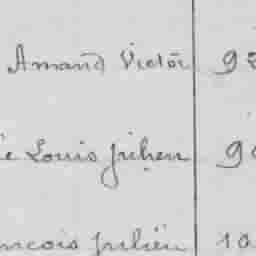 Amand Victor 9
Louis Julien 9
ncois Julien 10